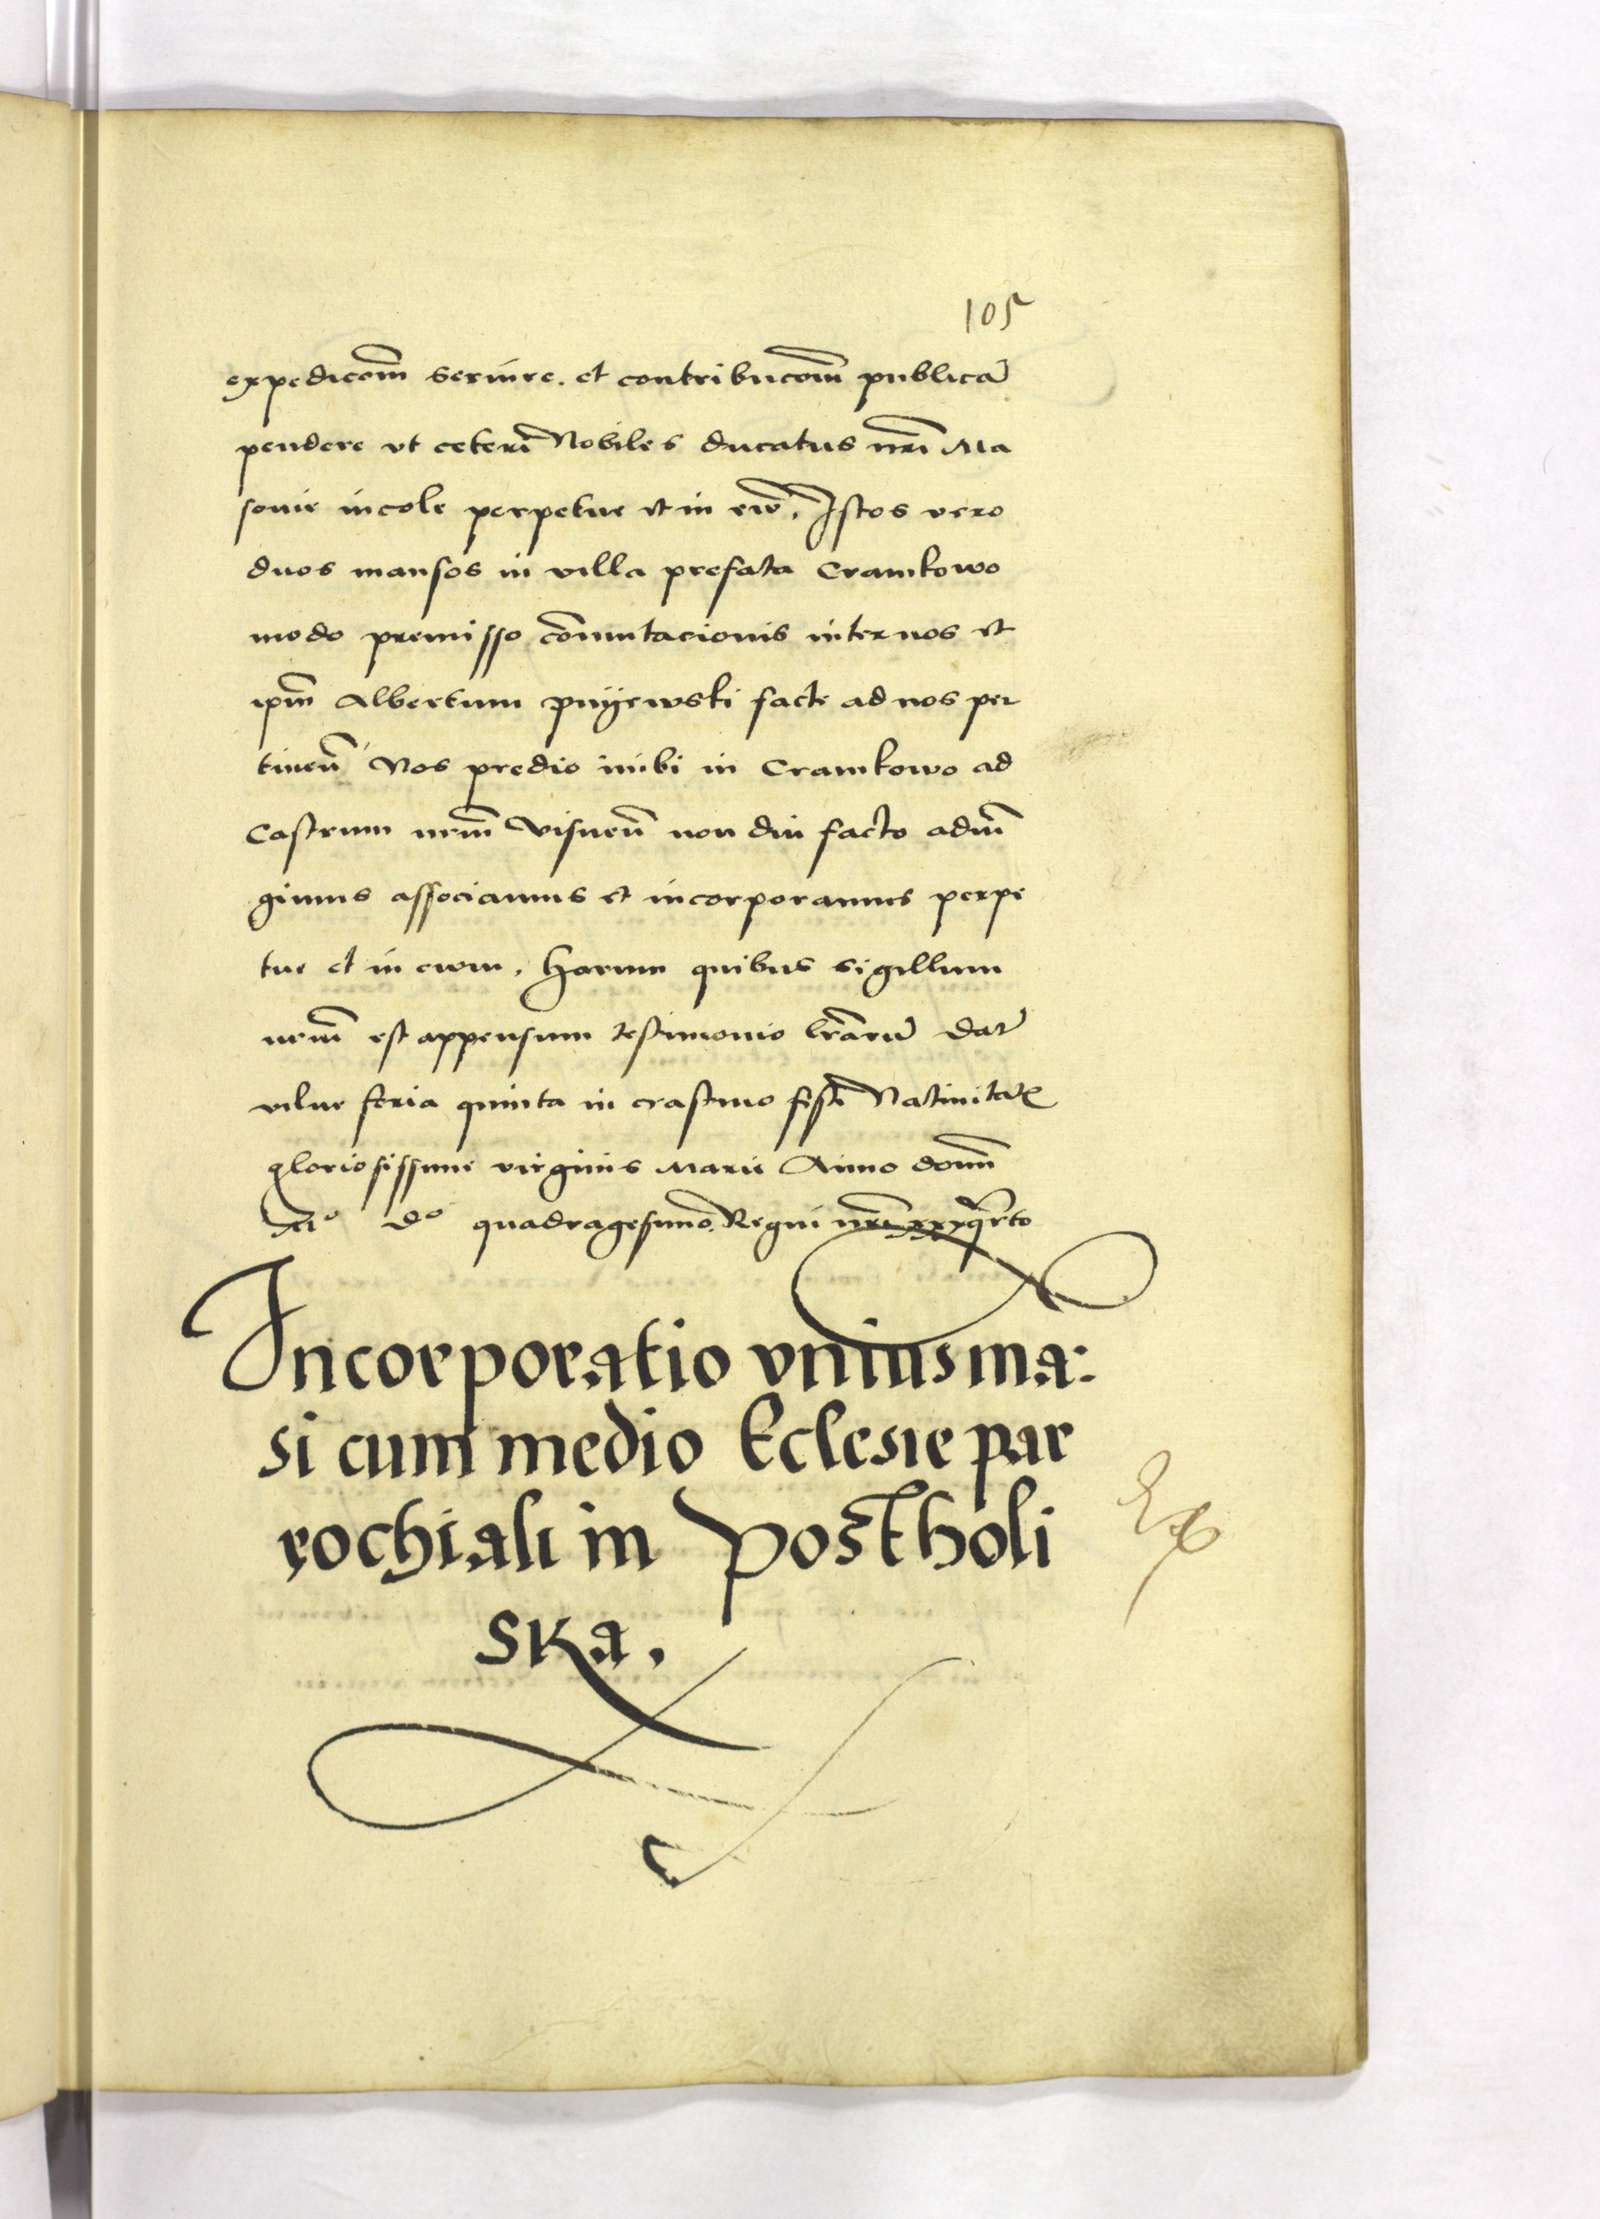 105
expedicõm seruire. et contribucõm publicā
pendere vt ceteri Nobiles ducatus nr̃i Ma
souie incole perpetue et in ewũ. Istos vero
duos mansos in villa prefata Cramkowo
modo premisso cõmutacionis inter nos et
ip̃m Albertum pnyewski facte ad nos per
tineñ Nos predio inibi in Cramkowo ad
Castrum nr̃m Visneñ non diu facto adiũ
gimus associamus et incorporamus perpe
tue et in ewm. Harum quibus sigillum
nr̃m est appensum testimonio l̃rarũ Dat̃
vilne feria quinta in crastino festi Natiuitatꝭ
gloriosissime virginis Marie Anno domĩ
Mº dº quadragesimo. Regni nr̃i xxxq̃rto
Incorporatio vnius ma:
si cum medio Eclesie par
rochiali in Postholi
ska.